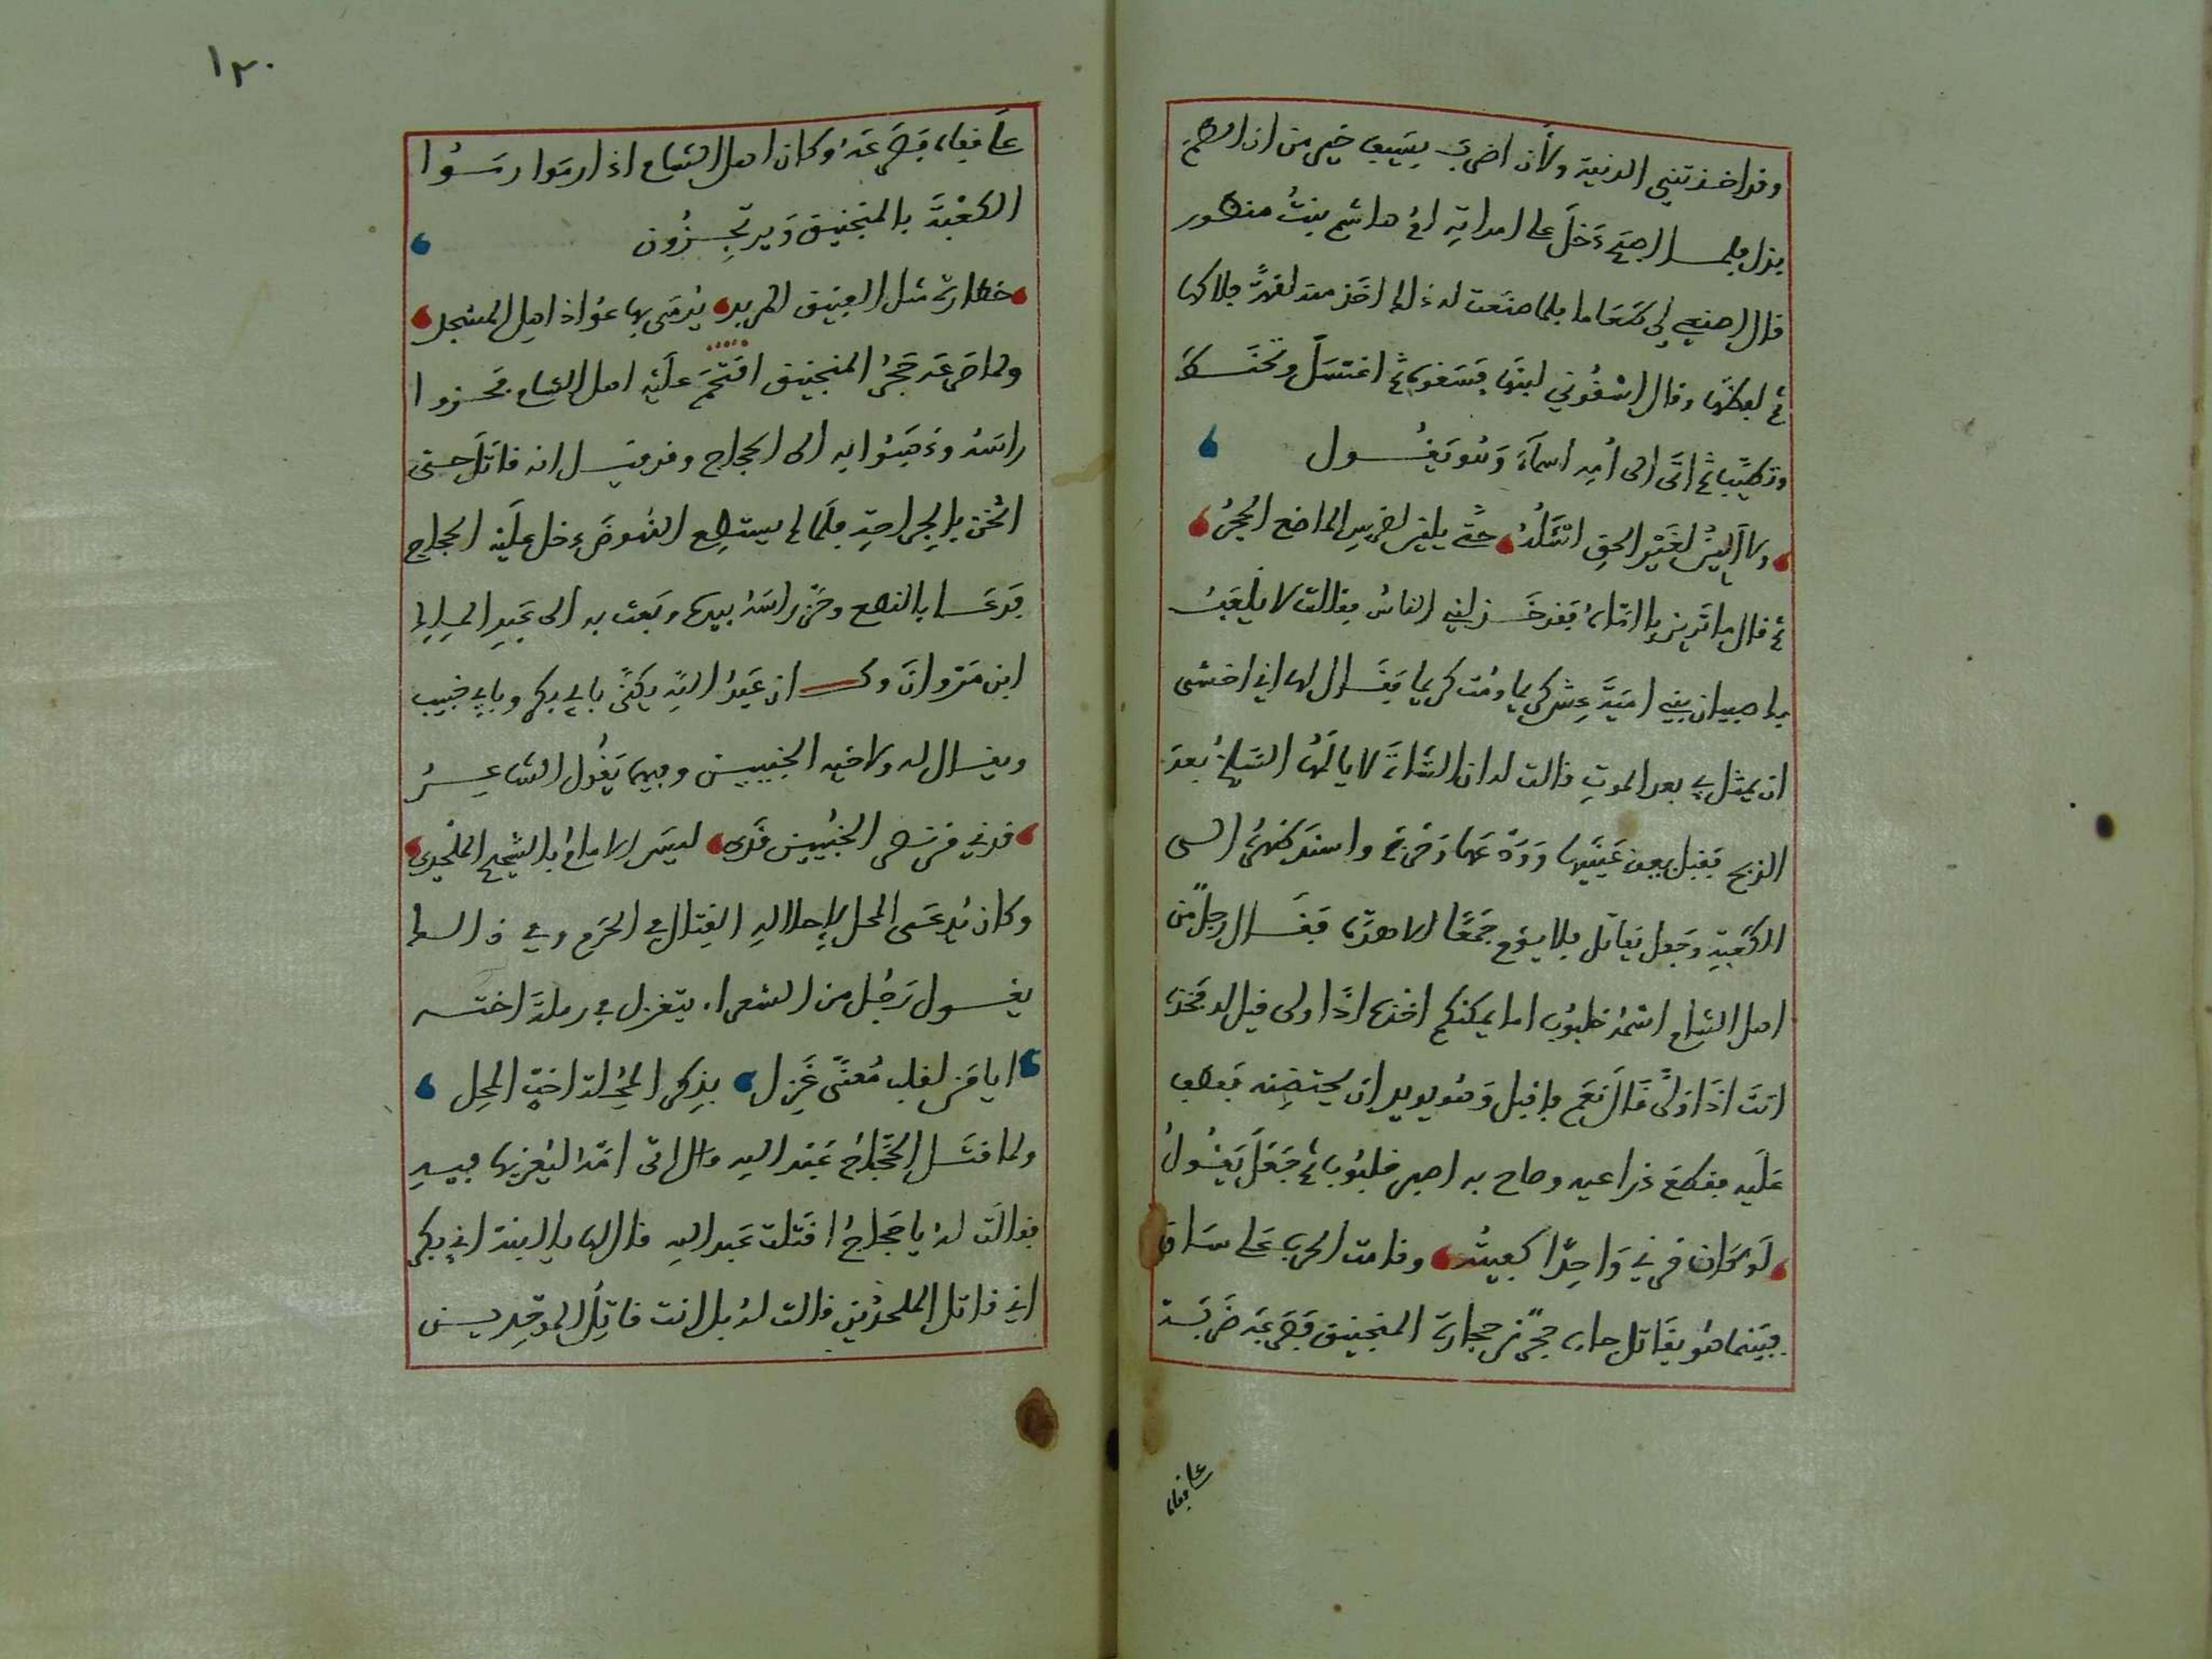 وقد اخذتني الدنية ولأن اضرب بسيف خير من ان اطعم
بذل فلمـا اصبح دَخلَ على امراته ام هاشم بنتُ منظور
قال اصنعي لي طعاما فلما صنعت له ذلك اخذ منه لقمةً فلاكها
ثم لفظها وقال اسقوني لبنا فسقوه ثم اغتسل وتحنط
وتطيّب ثم اتى الى أمه اسماءَ وَهُو يَقُـول
ولا ألين لغير الحق اسئله حتى يلين لضرس الماضغ الحجر
ثم قال ما ترين يا امّاه فقد خذلني الناسُ فقالت لا يلعب
بك صبيان بني امية عش كريما ومت كريما فقـال لها اني اخشى
ان يمثل بي بعد الموت قالت له ان الشاة لا يالمها السلخ بعد
الذبح فقبل بين عينيها وودعها وخرج واسند ظهره الـى
الكعبة وجعل يقاتل فلا يؤم جمعًا الا هزمه فقـال رجل من
اهل الشام اسمه خلبوب اما يمكنكم اخذه اذا ولى قيل له فخذه
انت اذا ولّى قال نعم فاقبل وهو يريد ان يحتضنه فعطف
عليه فقطع ذراعيه وصاح به اصبر خلبوب ثم جعل يقول
لو كان قرني واحدًا كفيته وقامت الحرب على ساق
فبينما هو يقاتل جاءه حجر من حجارة المنجنيق فصرعه ضربة
على قفاه
١٢٠
على قفاه فصرعه وكان اهل الشام اذا رموا رموا
الكعبة بالمنجنيق ويرتجزون
خطارة مثل الفنيق المزبد يُرمَى بها عواذ اهل المسجد
ولما صرعه حجر المنجنيق اقتحم عليه اهل الشام فحزوا
راسه وذهبوا به الى الحجاج وقد قيـل انه قاتل حتى
اثخن بالجراحة فلما لم يستطع النهوض دخل عليه الحجاج
فدعـا بالنطع وحز راسه بيده وبعث به الى عبد الملك
ابن مروان وكـان عبد الله يكنى بابي بكر وبابي خبيب
ويقـال له ولاخيه الخبيبين وفيهما يقول الشاعـر
قدني من نصر الخبيبين قدي ليس الامام بالشحيح الملحد
وكان يُدعَى المحل لاحلاله القتال في الحرم وفي ذالـك
يقـول رجل من الشعراء يتغزل في رملة اختـه
ايا من لقلب معنّى غزل بذكر المحلة اخت المحل
ولما قتـل الحجاج عبد الله قال اتى امه ليعزيها فيـه
فقالت له يا حجاج اقتلت عبد الله قال لها يا ابنة ابي بكر
اني قاتل الملحدين قالت له بل انت قاتل الموحديـن